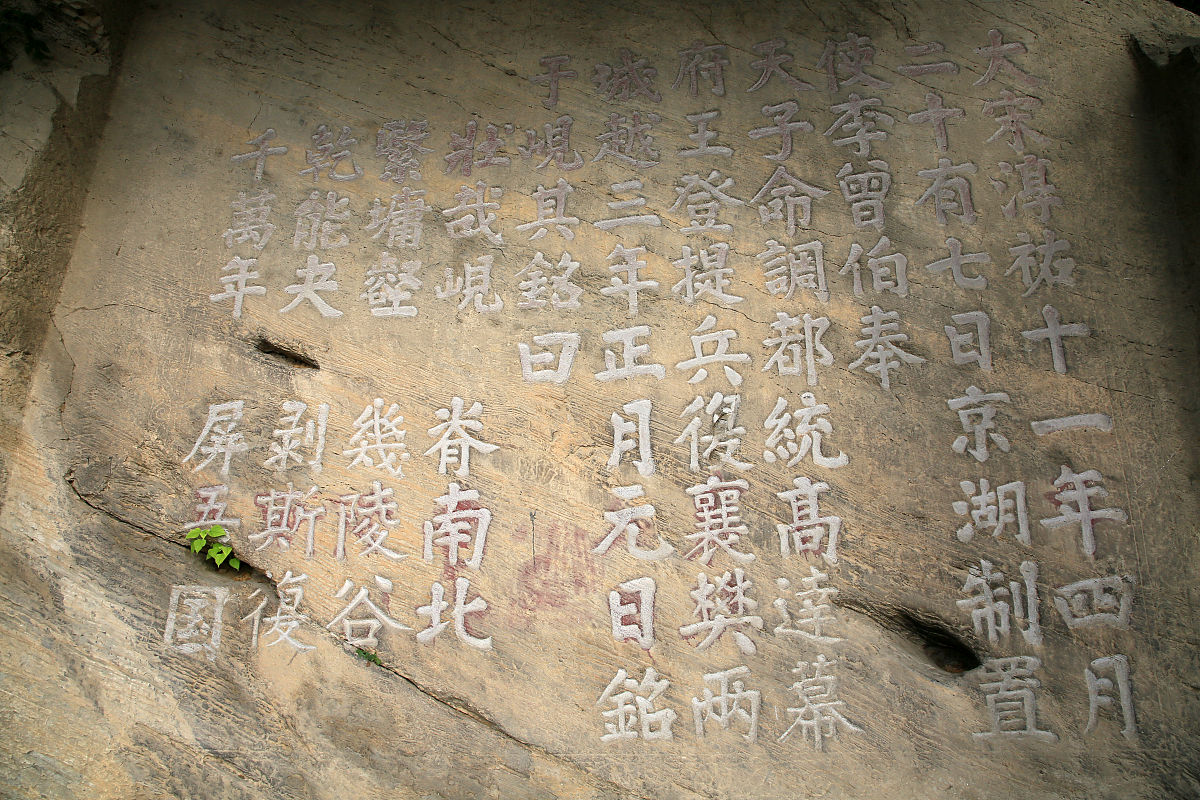 大宋淳祐十一年四月
二十有七日京湖制置
使李曾伯奉
天子命調都統髙達幕
府王登提兵復襄樊兩
城越三年正月元日銘
于峴其銘曰
壯哉峴 脊南北
繄墉壑 幾陵谷
乾能夬 剥斯復
千萬年 屏吾國